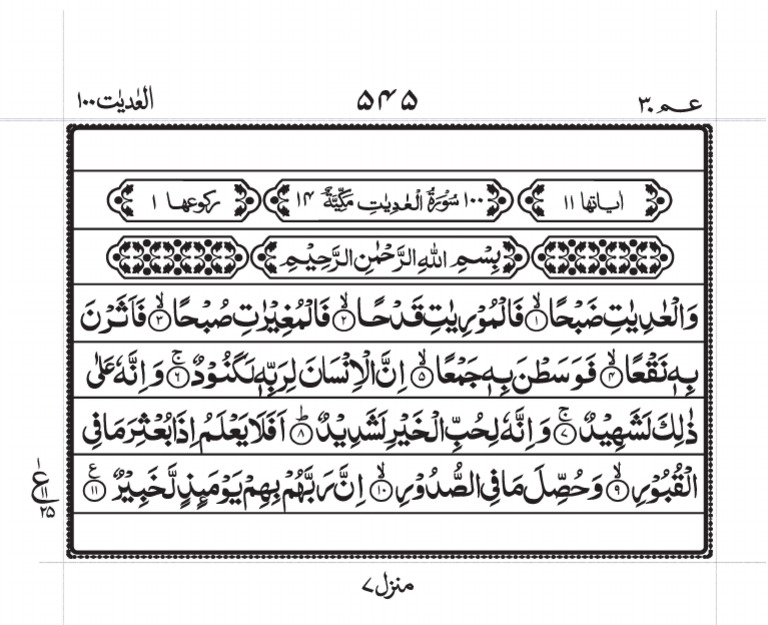 عـــم ٣٠ ۵۴۵ العٰدیٰت ۱۰۰
اٰیاتھا ۱۱ ۱۰۰ سُوْرَةُ الْعٰدِیٰتِ مَکِّیَّةٌ ۱۴ رکوعھا ۱
بِسْمِ اللّٰهِ الرَّحْمٰنِ الرَّحِیْمِ
وَالْعٰدِیٰتِ ضَبْحًا ۙ﴿۱﴾ فَالْمُوْرِیٰتِ قَدْحًا ۙ﴿۲﴾ فَالْمُغِیْرٰتِ صُبْحًا ۙ﴿۳﴾ فَاَثَرْنَ
بِهٖ نَقْعًا ۙ﴿۴﴾ فَوَسَطْنَ بِهٖ جَمْعًا ۙ﴿۵﴾ اِنَّ الْاِنْسَانَ لِرَبِّهٖ لَکَنُوْدٌ ۚ﴿۶﴾ وَ اِنَّهٗ عَلٰی
ذٰلِكَ لَشَهِیْدٌ ۚ﴿۷﴾ وَ اِنَّهٗ لِحُبِّ الْخَیْرِ لَشَدِیْدٌ ؕ﴿۸﴾ اَفَلَا یَعْلَمُ اِذَا بُعْثِرَ مَا فِی
الْقُبُوْرِ ۙ﴿۹﴾ وَ حُصِّلَ مَا فِی الصُّدُوْرِ ۙ﴿۱۰﴾ اِنَّ رَبَّهُمْ بِهِمْ یَوْمَئِذٍ لَّخَبِیْرٌ ﴿۱۱﴾ ع
۱
ع
۱۱
۲۵
منزل ۷